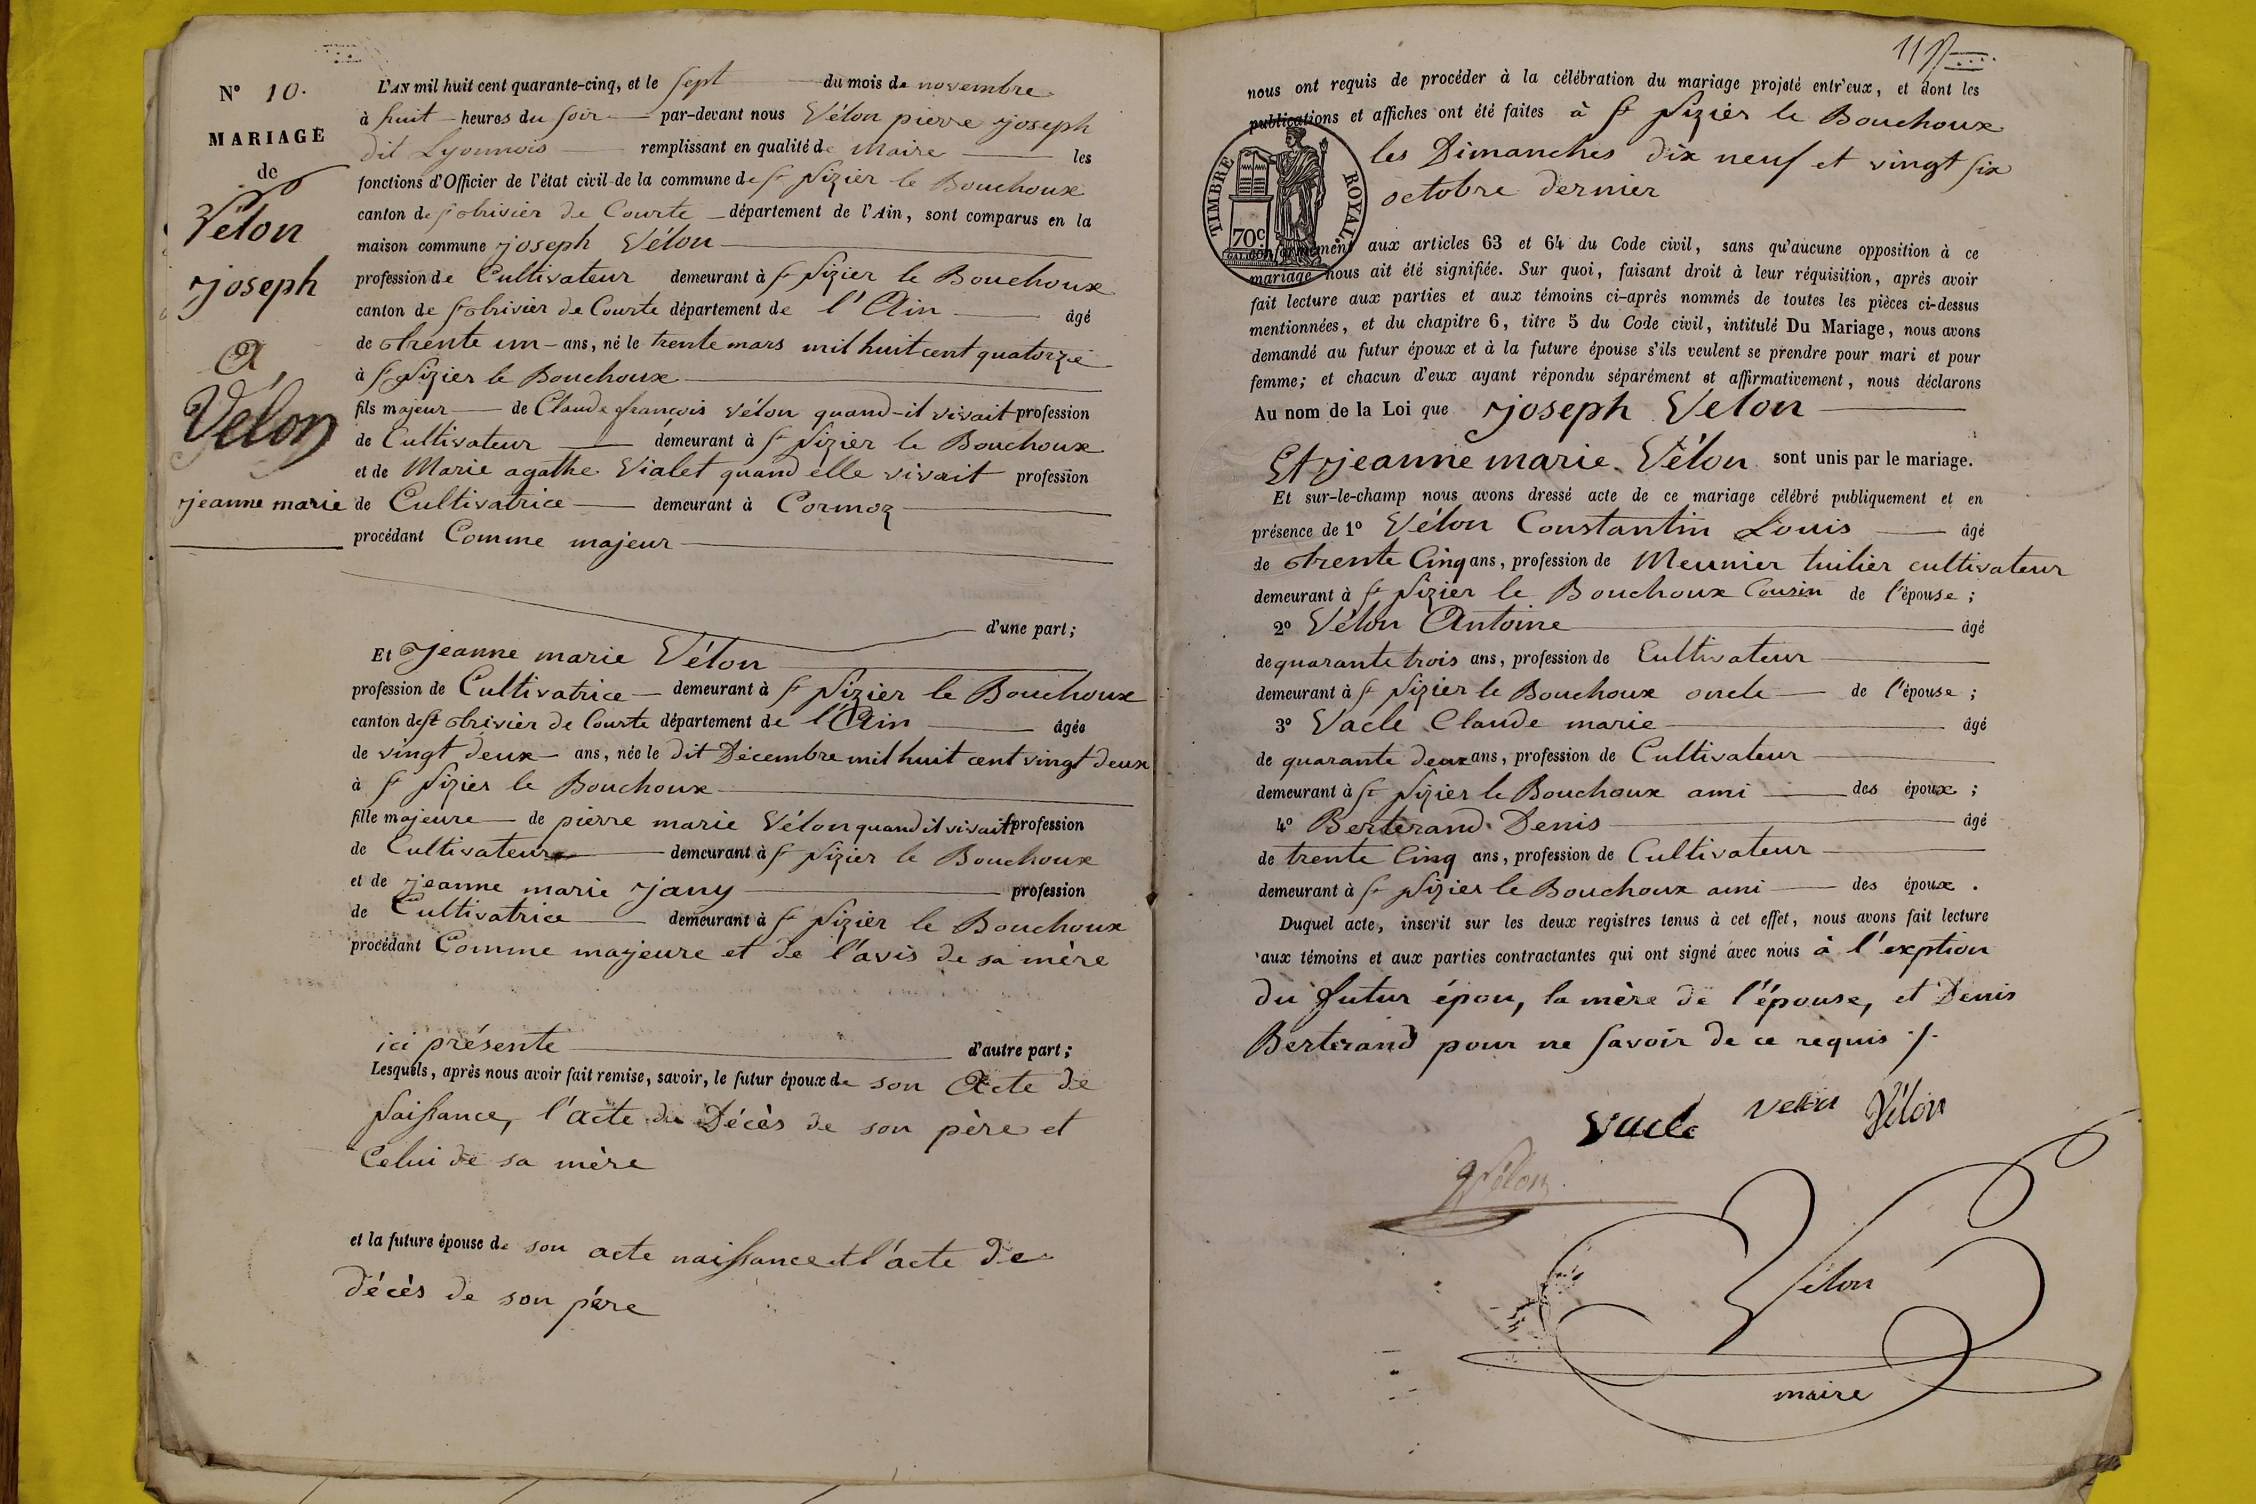 N° 10.
MARIAGE
de
Vélon
joseph
Et
Vélon
jeanne marie
L'AN mil huit cent quarante-cinq, et le sept du mois de novembre
à huit heures du soir par-devant nous Vélon pierre joseph
dit Lyonnois remplissant en qualité de Maire les
fonctions d'Officier de l'état civil de la commune de St Nizier le Bouchoux
canton de St trivier de Courte département de l'Ain, sont comparus en la
maison commune joseph Vélon
profession de Cultivateur demeurant à St Nizier le Bouchoux
canton de St trivier de Courte département de l'Ain âgé
de trente un ans, né le trente mars mil huit cent quatorze
à St Nizier le Bouchoux
fils majeur de Claude françois Vélon quand-il vivait profession
de Cultivateur demeurant à St Nizier le Bouchoux
et de Marie agathe Vialet quand elle vivait profession
de Cultivatrice demeurant à Cormoz
procédant Comme majeur
d'une part;
Et jeanne marie Vélon
profession de Cultivatrice demeurant à St Nizier le Bouchoux
canton de St trivier de Courte département de l'Ain âgée
de vingt deux ans, née le dit Décembre mil huit cent vingt deux
à St Nizier le Bouchoux
fille majeure de pierre marie Vélon quand il vivait profession
de Cultivateur demeurant à St Nizier le Bouchoux
et de jeanne marie jany profession
de Cultivatrice demeurant à St Nizier le Bouchoux
procédant Comme majeure et de l'avis de sa mère
ici présente d'autre part;
Lesquels, après nous avoir fait remise, savoir, le futur époux de son Acte de
Naissance, l'acte de Décès de son père et
Celui de sa mère
et la future épouse de son acte naissance et l'acte de
décès de son père
11
nous ont requis de procéder à la célébration du mariage projeté entr'eux, et dont les
publications et affiches ont été faites à St Nizier le Bouchoux
les Dimanches dix neuf et vingt six
octobre dernier
TIMBRE ROYAL
70c
conformément aux articles 63 et 64 du Code civil, sans qu'aucune opposition à ce
mariage nous ait été signifiée. Sur quoi, faisant droit à leur réquisition, après avoir
fait lecture aux parties et aux témoins ci-après nommés de toutes les pièces ci-dessus
mentionnées, et du chapitre 6, titre 5 du Code civil, intitulé Du Mariage, nous avons
demandé au futur époux et à la future épouse s'ils veulent se prendre pour mari et pour
femme; et chacun d'eux ayant répondu séparément et affirmativement, nous déclarons
Au nom de la Loi que joseph Vélon
Et jeanne marie Vélon sont unis par le mariage.
Et sur-le-champ nous avons dressé acte de ce mariage célébré publiquement et en
présence de 1° Vélon Constantin Louis âgé
de trente Cinq ans, profession de Meunier tuilier cultivateur
demeurant à St Nizier le Bouchoux Cousin de l'épouse;
2° Vélon Antoine âgé
de quarante trois ans, profession de Cultivateur
demeurant à St Nizier le Bouchoux oncle de l'épouse;
3° Vacle Claude marie âgé
de quarante deux ans, profession de Cultivateur
demeurant à St Nizier le Bouchoux ami des époux;
4° Berterand Denis âgé
de trente Cinq ans, profession de Cultivateur
demeurant à St Nizier le Bouchoux ami des époux.
Duquel acte, inscrit sur les deux registres tenus à cet effet, nous avons fait lecture
aux témoins et aux parties contractantes qui ont signé avec nous à l'exption
du futur épou, la mère de l'épouse, et Denis
Berterand pour ne savoir de ce requis ./.
Vacle Velon Vélon
Vélon
Vélon
maire